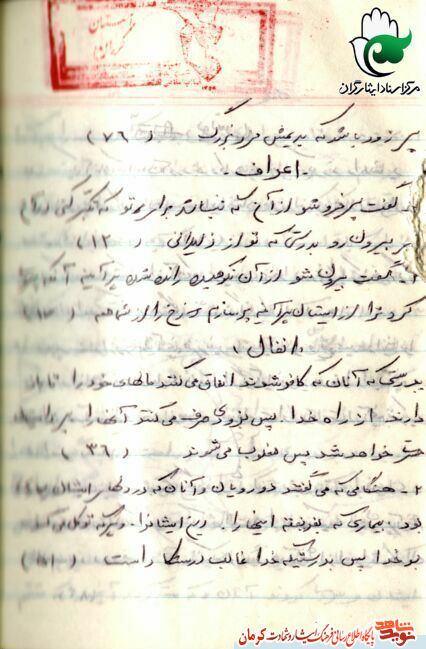 مرکز اسناد ایثارگران
پس زود باشد که بدیمش مزد بزرگ (۷۶)
اعراف
گفت پس فرو شو از آن که نباشد مر تو که تکبر کنی در آن
پس بیرون رو بدرستی که تو از زلیلانی (۱۳)
۲ـ گفت بیرون شو از آن نکوهیده رانده شده هر آینه آنکه
کرد ترا از ایشان هر آینه پر سازم دوزخ را از شما همه
انفال
بدرستی که آنان که کافر شوند انفاق می کنند مالهای خود را تا باز
دارند از راه خدا پس بزودی صرف می کنند آنها را پس
حسرت خواهد شد پس مغلوب می شوند (۳۶)
۲ـ هنگامی که می گفتند دورویان و آنان که در دلهای ایشان
بود بیماری که بفریفته اینها را دین ایشان را و هر که توکل
بر خدا پس بدرستیکه خدا غالب درستکار است
نوید شاهد
پایگاه اطلاع رسانی فرهنگ ایثار و شهادت کرمان